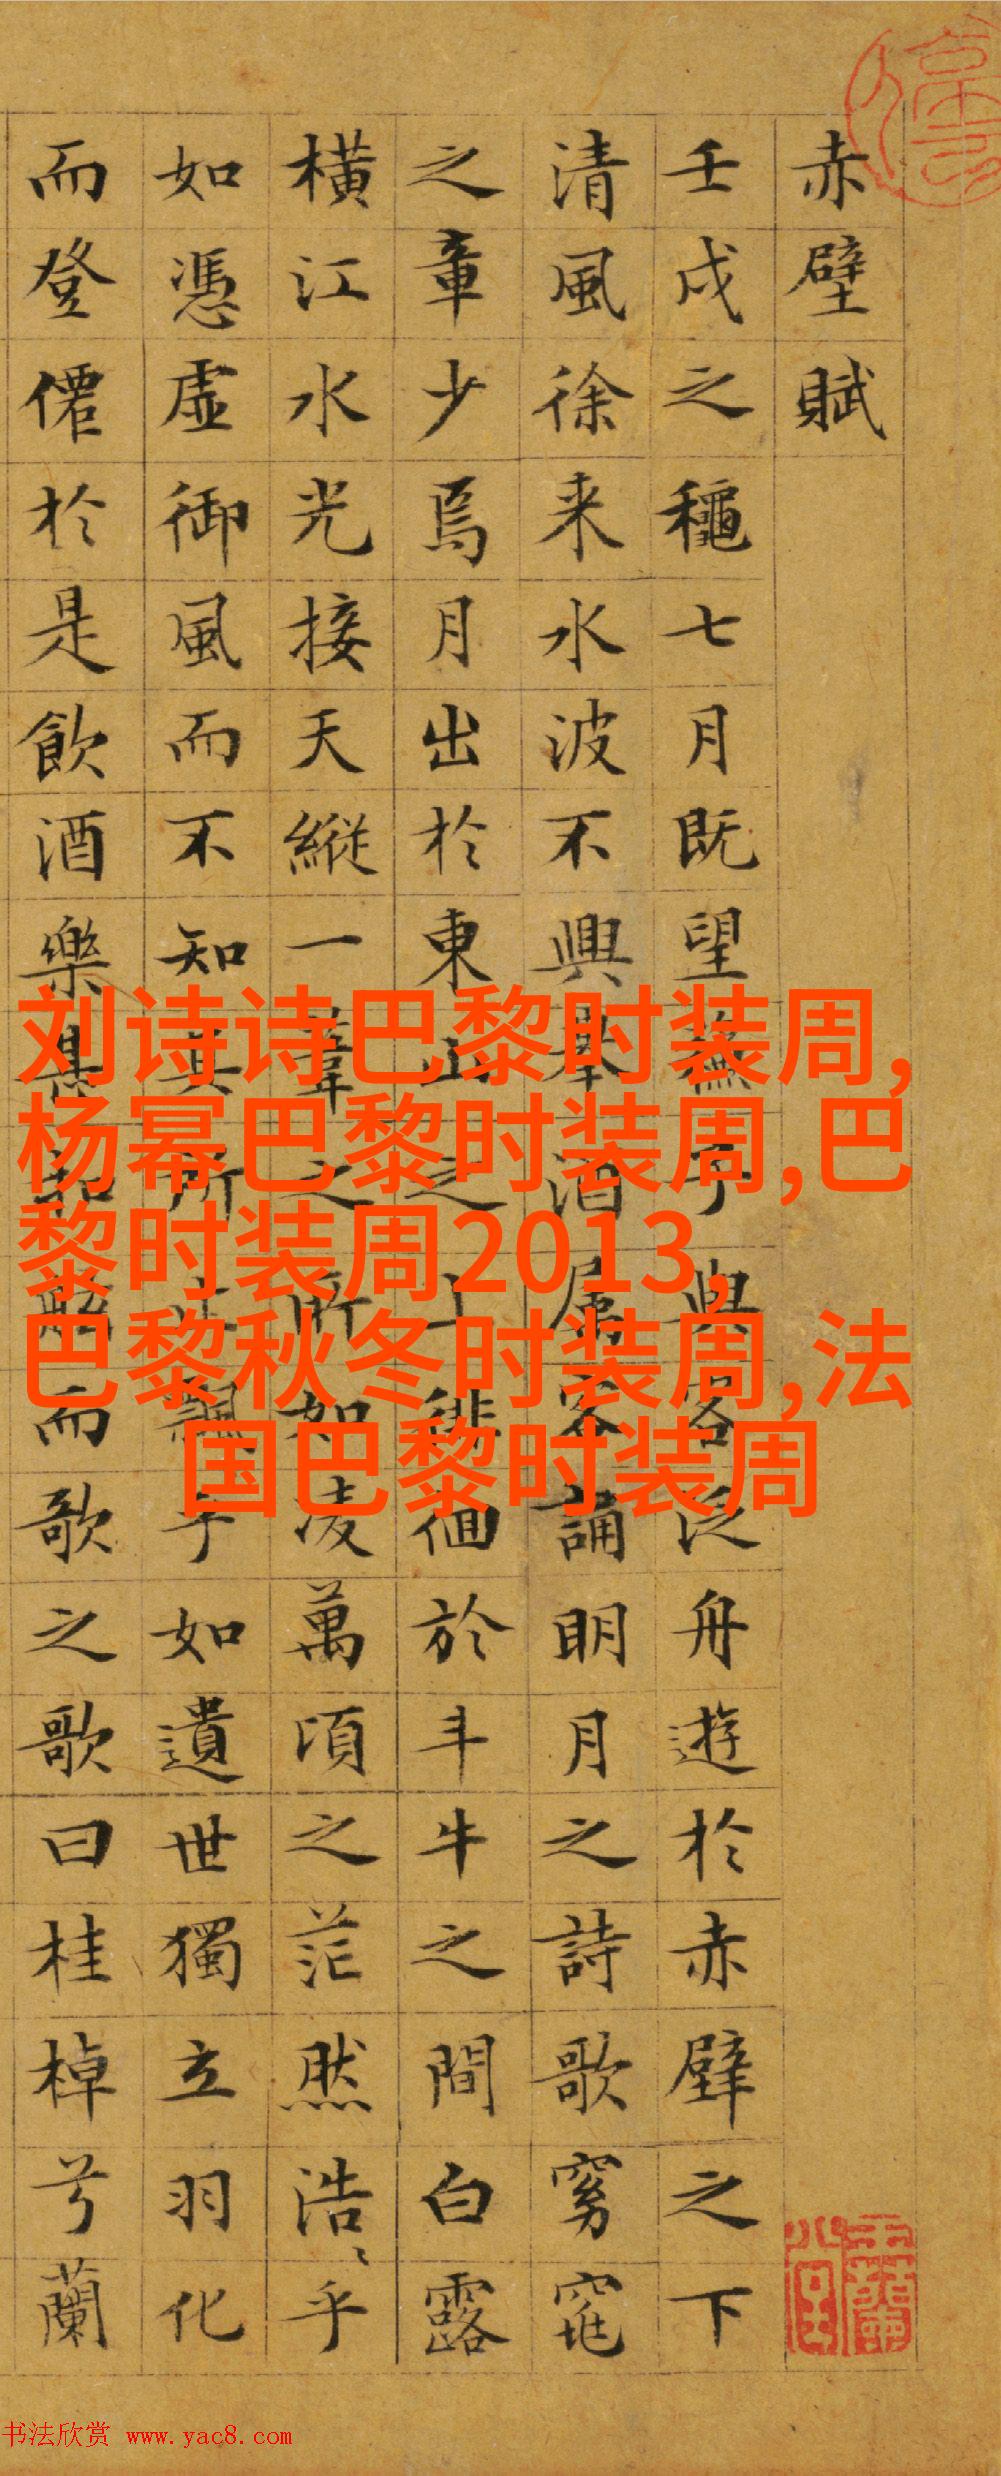 赤壁賦
壬戌之龝七月既望蘓子與客泛舟遊於赤壁之下
清風徐来水波不興舉酒屬客誦眀月之詩歌窈窕
之章少焉月出於東山之上徘佪於斗牛之間白露
橫江水光接天縱一葦之所如凌萬頃之茫然浩〻乎
如憑虛御風而不知其所止飄乎如遺世獨立羽化
而登僊於是飲酒樂甚扣舷而歌之歌曰桂棹兮蘭
刘诗诗巴黎时装周,
杨幂巴黎时装周,巴
黎时装周2013,
巴黎秋冬时装周,法
国巴黎时装周
书法欣赏 www.yac8.com